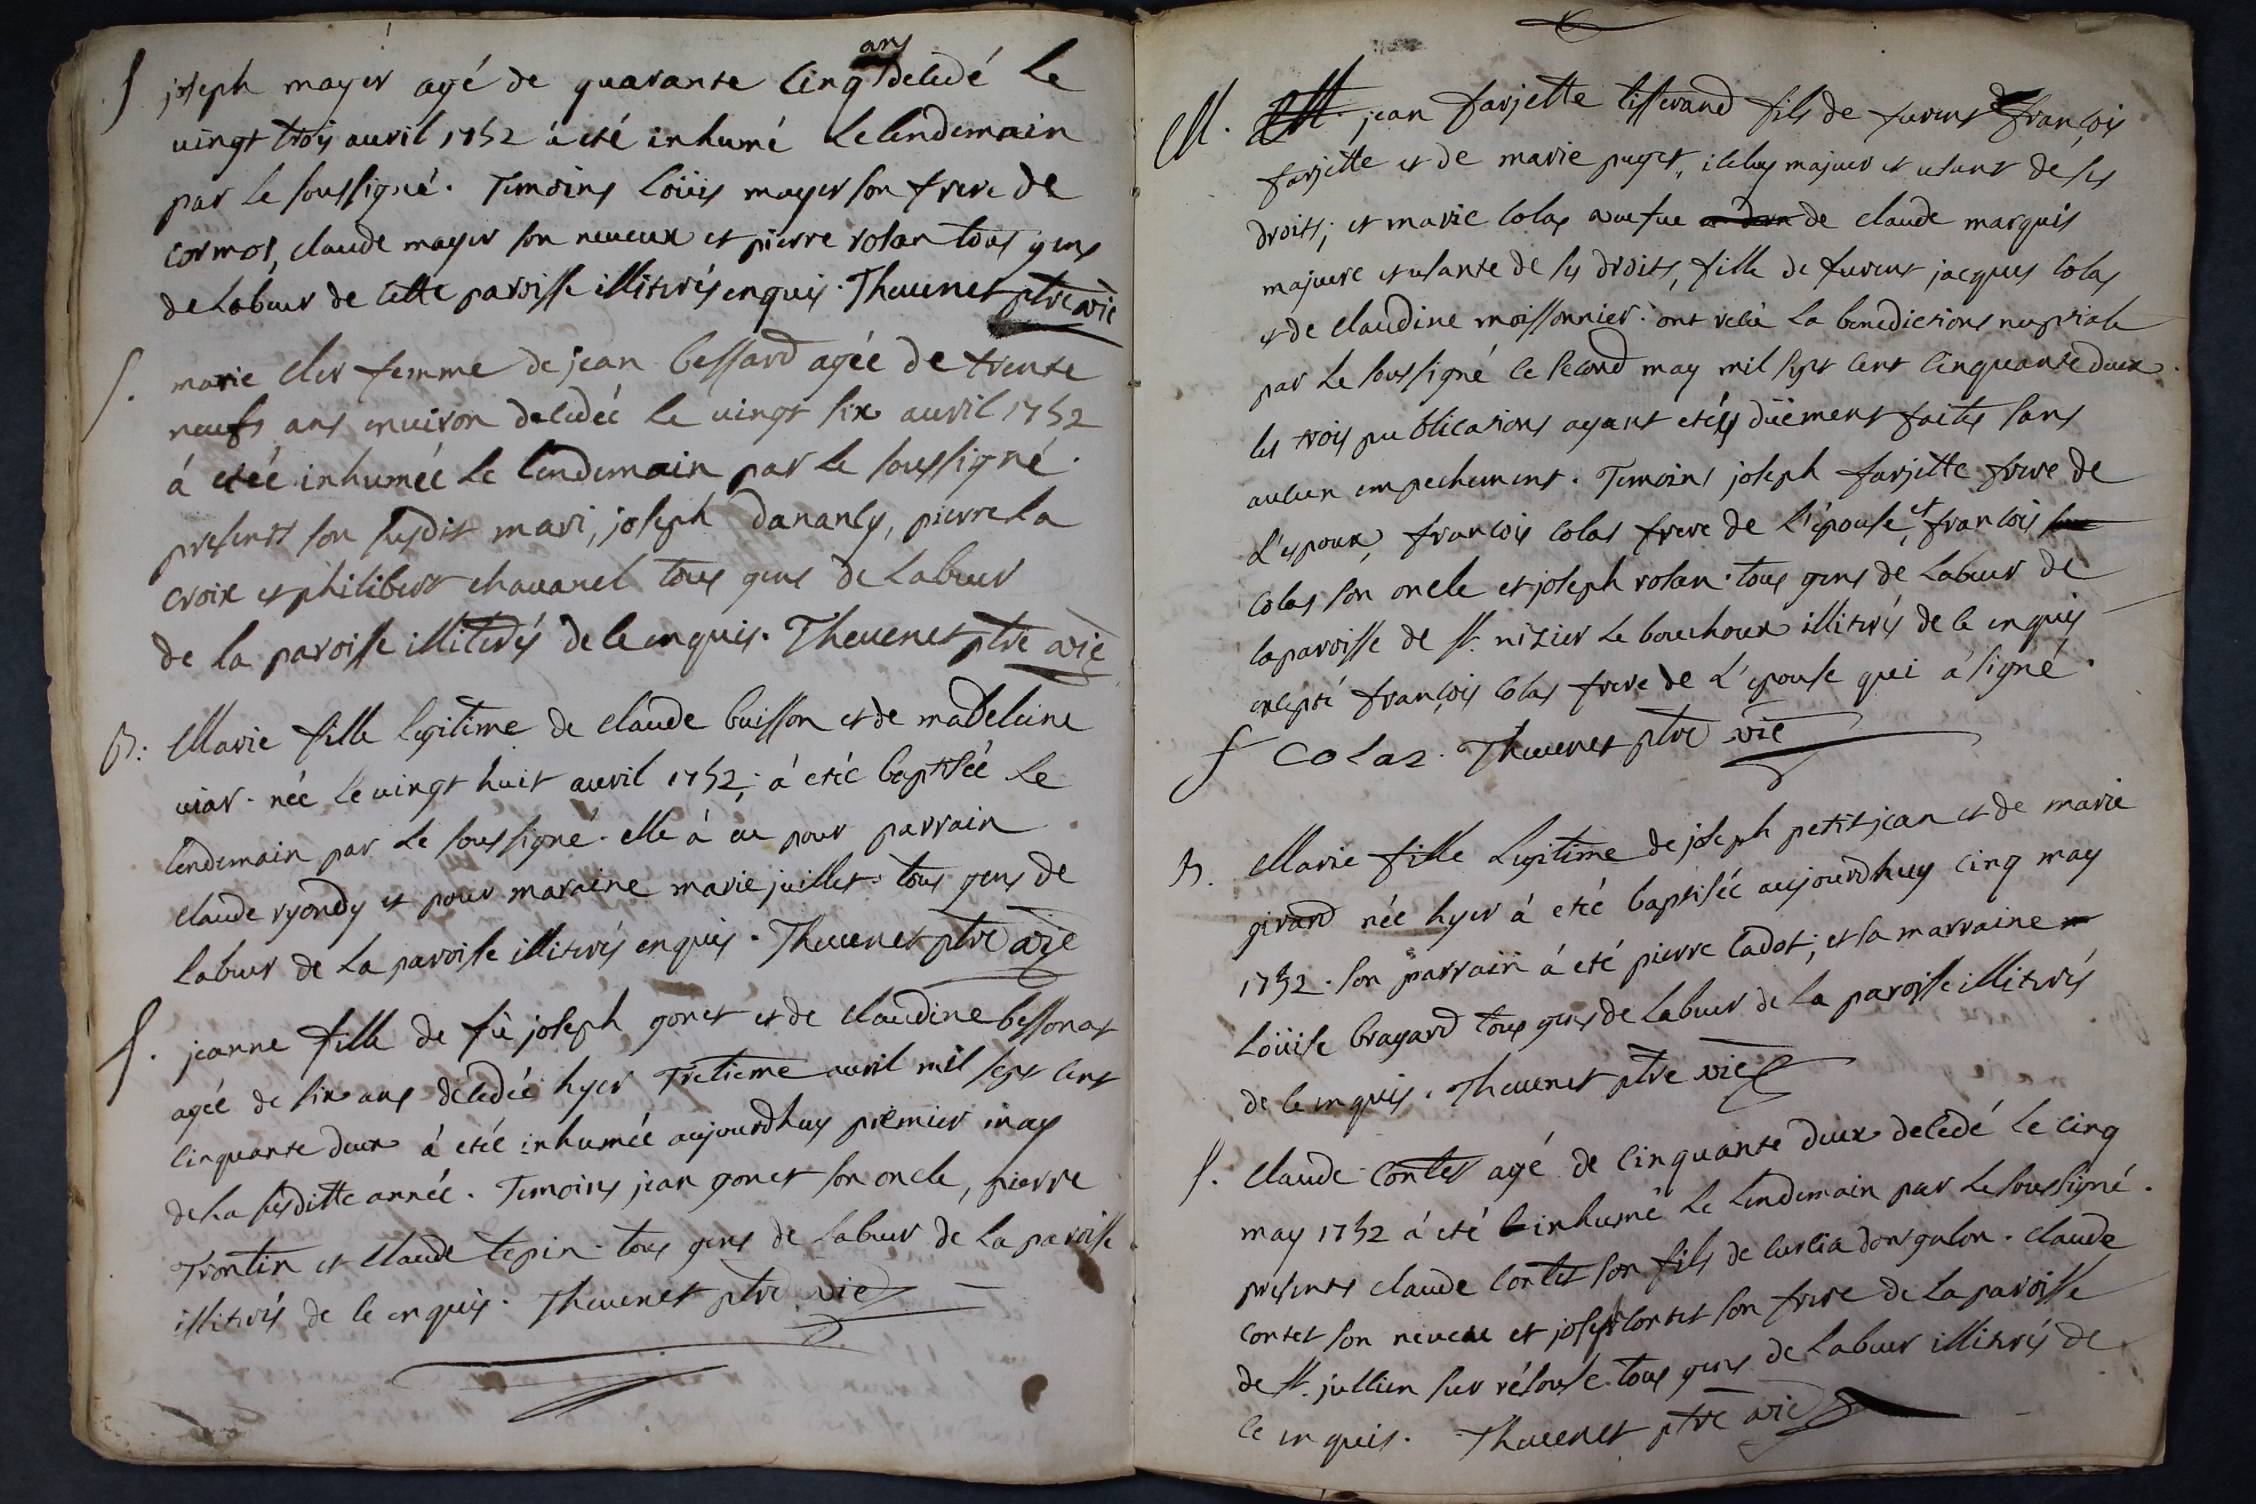 S joseph mayer agé de quarante cinq ans decedé le
vingt trois auvril 1752 à eté inhumé le lendemain
par le soussigné. Temoins loüis mayer son frere de
cormos, claude mayer son neveux et pierre rolan tous gens
de labeur de cette paroisse illiterés enquis. Thevenet ptre vic
S. marie cler femme de jean bessard agée de trente
neufs ans environ decedéé le vingt six auvril 1752
á etéé inhuméé le lendemain par le soussigné.
presents son susdit mari, joseph dananly, pierre la
croix et philibert chavanel tous gens de labeur
de la paroisse illiterés de ce enquis. Thevenet ptre vic
B: Marie fille legitime de claude buisson et de madeleine
viar. néé le vingt huit auvril 1752, á etéé baptiséé le
lendemain par le soussigné. elle á eu pour parrain
claude ryondy et pour maraine marie juillet. tous gens de
labeur de la paroisse illiterés enquis. Thevenet ptre vic
S. jeanne fille de fü joseph gonet et de claudine bessonat
agéé de six ans decedéé hyer tretieme auvril mil sept cent
cinquante deux á etéé inhuméé aujourdhuy premier may
de la susditte annéé. Temoins jean gonet son oncle, pierre
Trontin et claude tepin. tous gens de labeur de la paroisse
illiterés de ce enquis. Thevenet ptre vic
M. jean farjette tisserand fils de furent de françois
farjette et de marie puget, iceluy majeur et usant de ses
droits; et marie colas veufue de claude marquis
majeure et usante de ses droits, fille de furent jacques colas
et de claudine moissonnier. ont recü la benedictions nuptiale
par le soussigné le second may mil sept cent cinquante deux.
les trois publications ayant etéés düement faites sans
aucun empechement. Temoins joseph farjette frere de
l'espoux, françois colas frere de l'épouse, et françois
colas son oncle et joseph rolan. tous gens de labeur de
la paroisse de st. nizier le bouchoux illiterés de ce enquis
excepté françois colas frere de l'epouse qui á signé.
f colas. Thevenet ptre vic
B. Marie fille legitime de joseph petitjean et de marie
girand néé hyer á etéé baptiséé aujourdhuy cinq may
1752. son parrain á eté pierre cadot; et sa marraine
loüise bragard tous gens de labeur de la paroisse illiterés
de ce enquis. Thevenet ptre vic
S. claude contet agé de cinquante deux decedé le cinq
may 1752 á eté inhumé le lendemain par le soussigné.
presents claude contet son fils de curcia dongalon. claude
contet son neveu et joseph contet son frere de la paroisse
de st. jullien sur résouse. tous gens de labeur illiterés de
ce enquis. Thevenet ptre vic